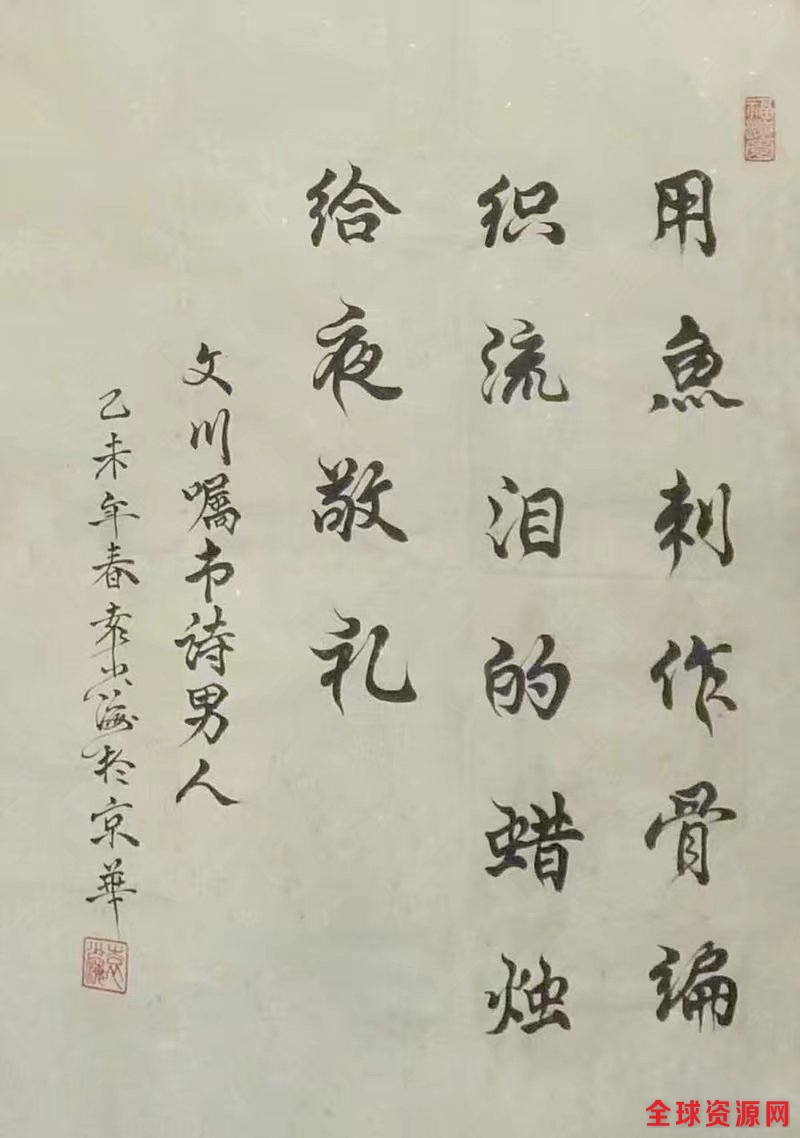 用魚刺作骨编
织流泪的蜡烛
给夜敬礼
文川嘱书诗男人
乙未年春袁小海於京華
全球资源网